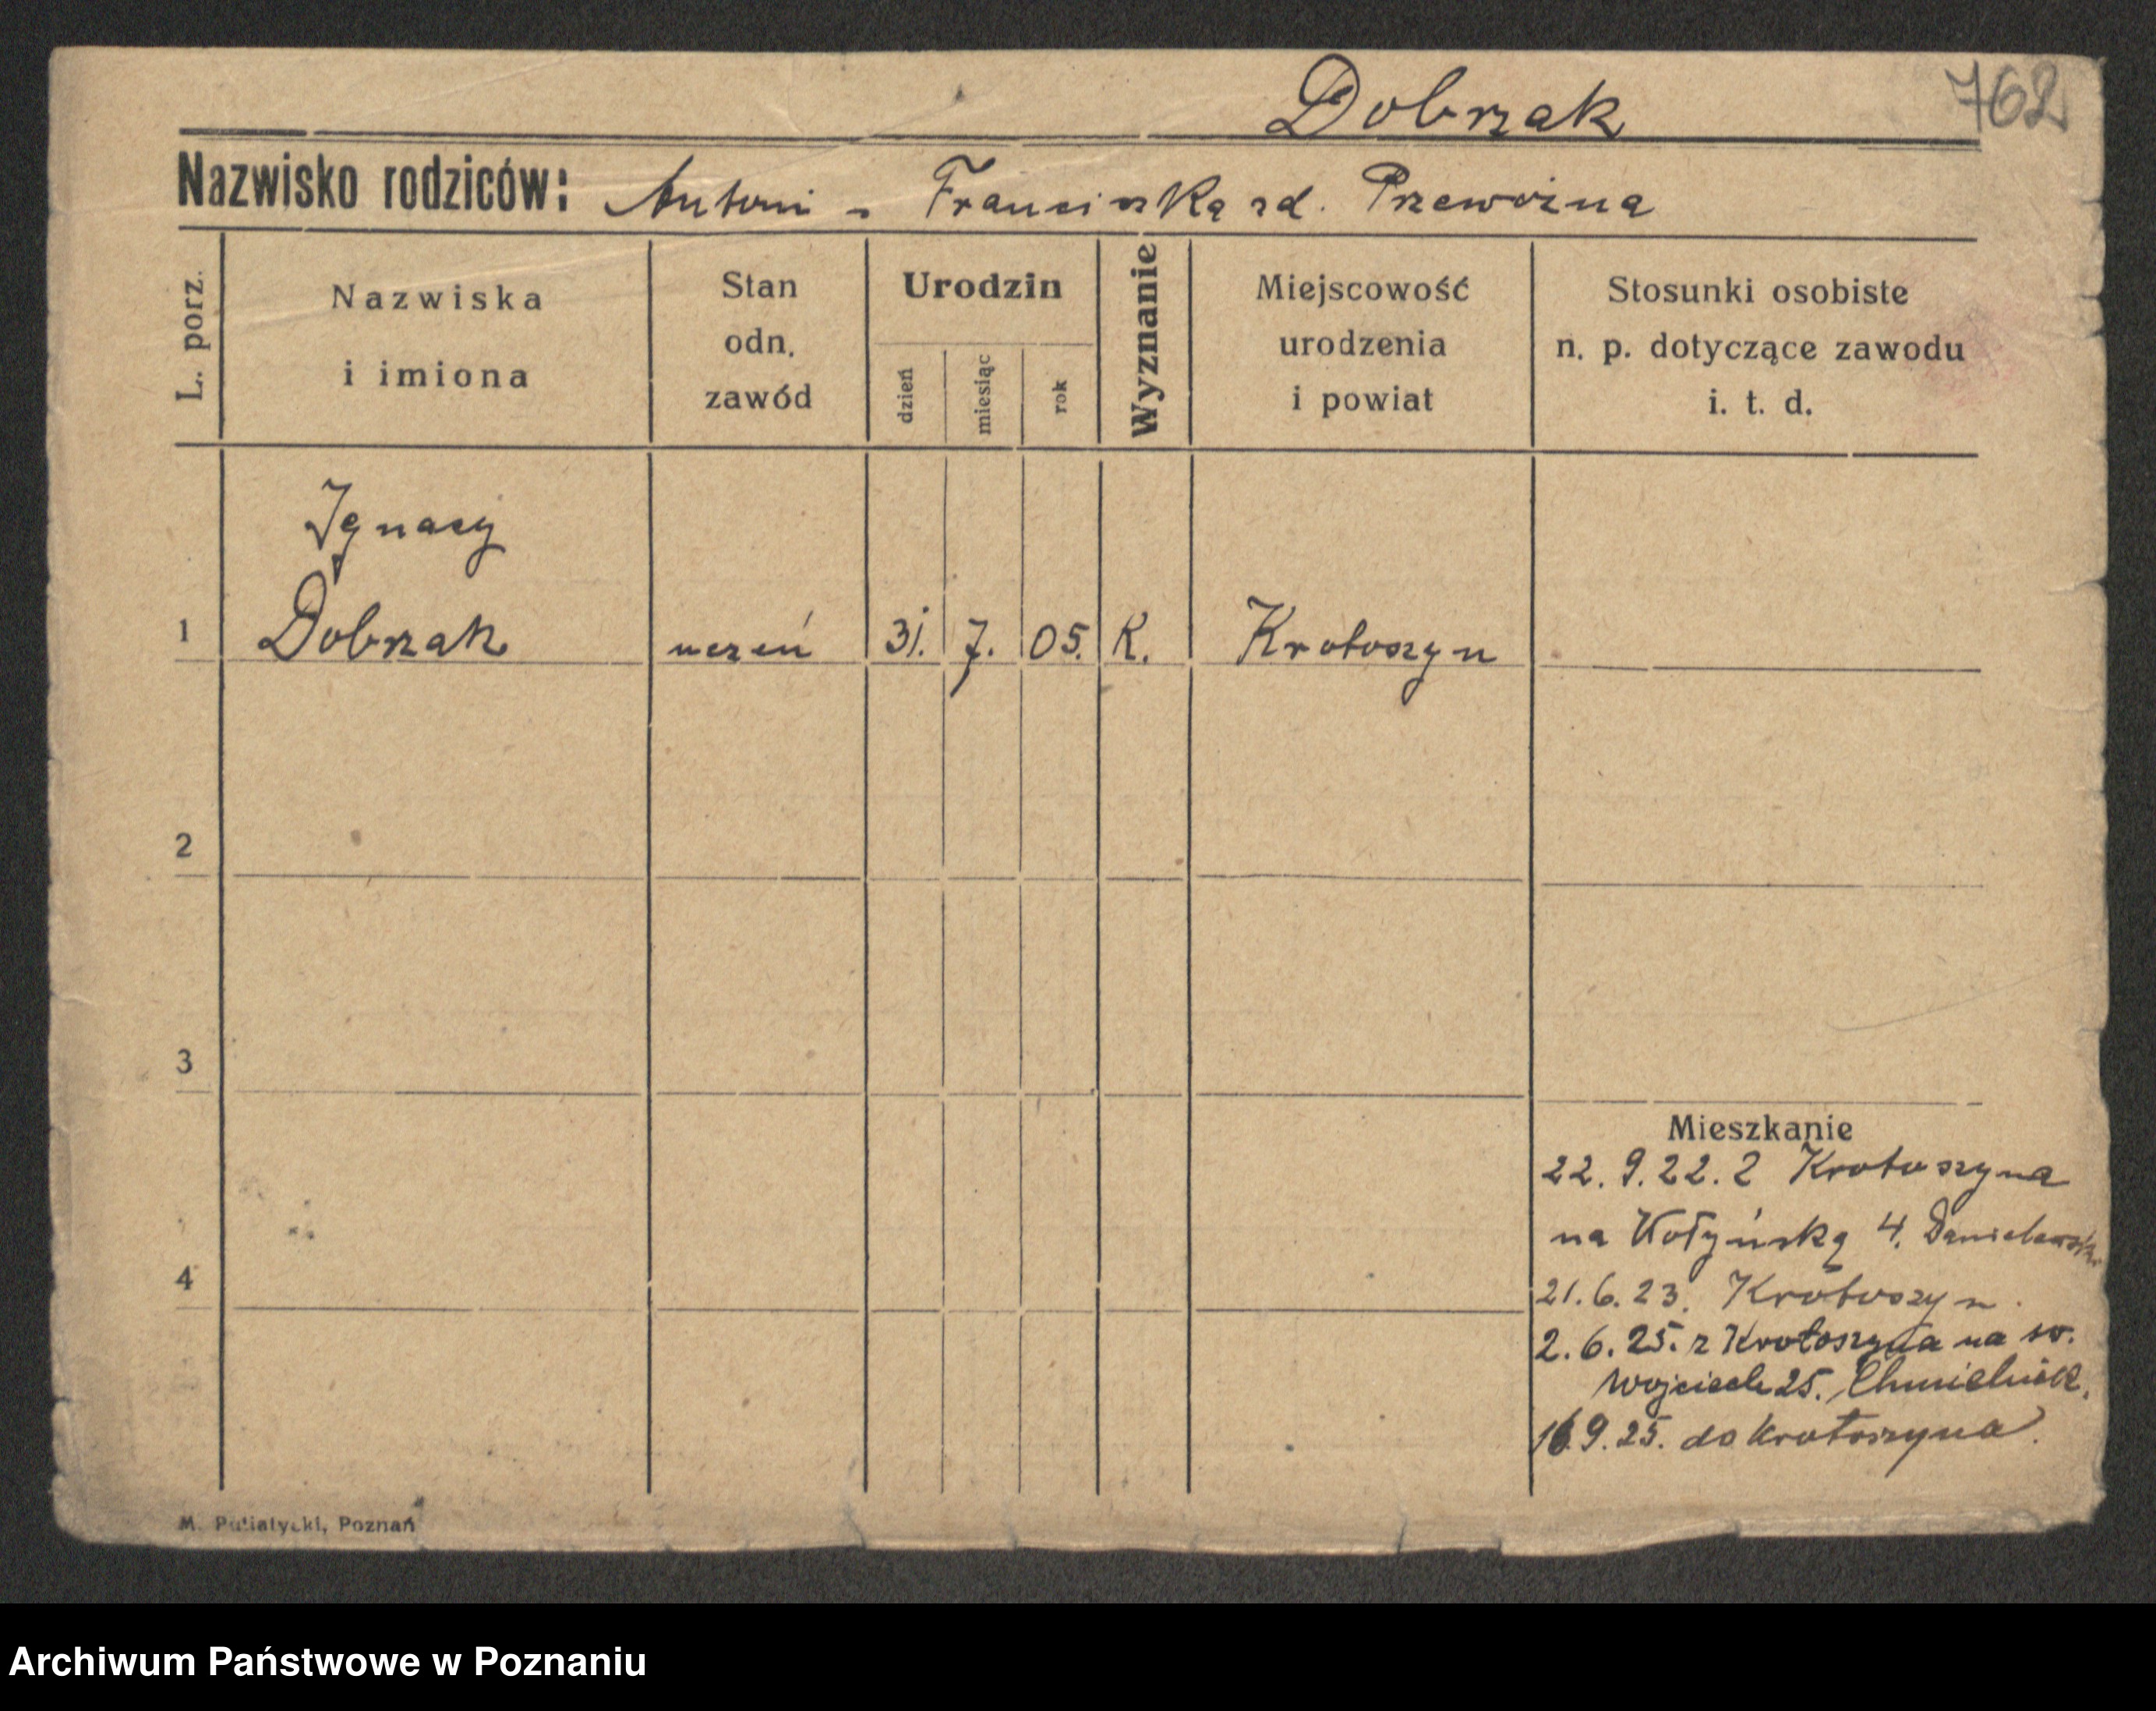 Dobrzak
762
Nazwisko rodziców: Antoni - Franciszka zd. Przewoźna
L. porz.
Nazwiska i imiona
Stan odn. zawód
Urodzin
dzień
miesiąc
rok
Wyznanie
Miejscowość urodzenia i powiat
Stosunki osobiste n. p. dotyczące zawodu i. t. d.
Ignacy
1 Dobrzak uczeń 31. 7. 05. K. Krotoszyn
2
3
Mieszkanie
22. 9. 22. z Krotoszyna
na Wołyńską 4.
4
21. 6. 23. Krotoszyn.
2. 6. 25. z Krotoszyna na św.
Wojciech 25. Chmielnik.
16 9. 25. do Krotoszyna.
M. Poznań
Archiwum Państwowe w Poznaniu